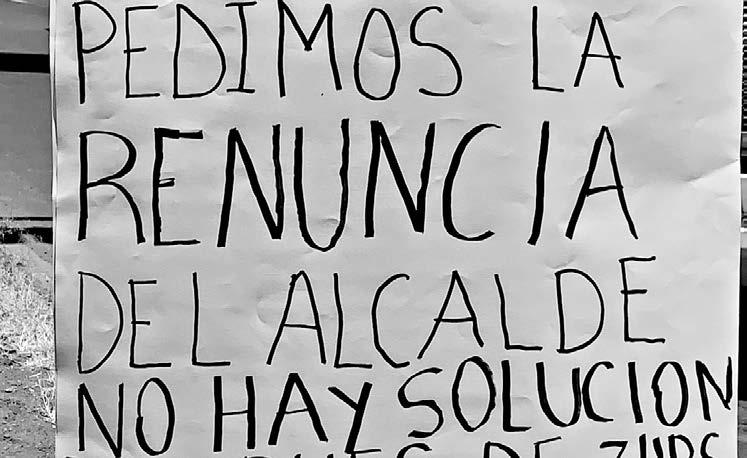 PEDIMOS LA
RENUNCIA
DEL ALCALDE
NO HAY SOLUCION
DE